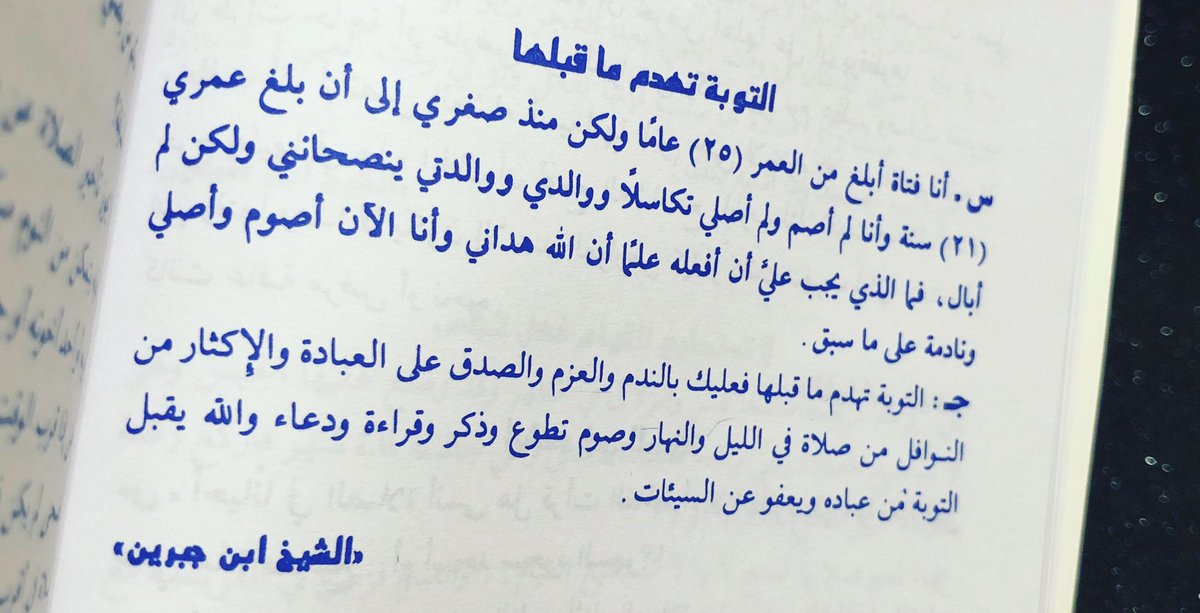 التوبة تهدم ما قبلها
س . أنا فتاة أبلغ من العمر (٢٥) عامًا ولكن منذ صغري إلى أن بلغ عمري
(٢١) سنة وأنا لم أصم ولم أصلي تكاسلًا ووالدي ووالدتي ينصحانني ولكن لم
أبال، فما الذي يجب عليَّ أن أفعله علمًا أن الله هداني وأنا الآن أصوم وأصلي
ونادمة على ما سبق .
جـ : التوبة تهدم ما قبلها فعليك بالندم والعزم والصدق على العبادة والإكثار من
النوافل من صلاة في الليل والنهار وصوم تطوع وذكر وقراءة ودعاء والله يقبل
التوبة من عباده ويعفو عن السيئات .
«الشيخ ابن جبرين»